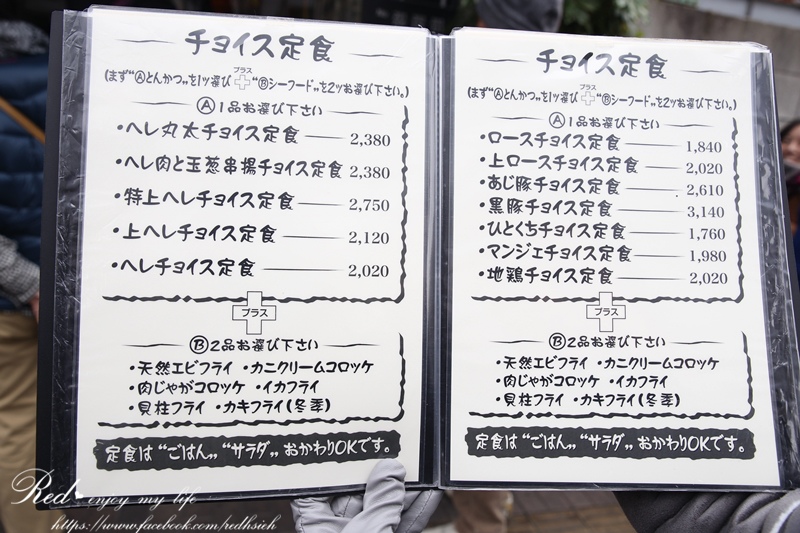 チョイス定食
(まず"Ⓐとんかつ"を1ツ選び プラス "Ⓑシーフード"を2ツお選び下さい。)
Ⓐ1品お選び下さい
・ヘレ丸太チョイス定食 2,380
・ヘレ肉と玉葱串揚チョイス定食 2,380
・特上ヘレチョイス定食 2,750
・上ヘレチョイス定食 2,120
・ヘレチョイス定食 2,020
プラス
Ⓑ2品お選び下さい
・天然エビフライ ・カニクリームコロッケ
・肉じゃがコロッケ ・イカフライ
・貝柱フライ ・カキフライ(冬季)
定食は"ごはん"、"サラダ"おかわりOKです。
チョイス定食
(まず"Ⓐとんかつ"を1ツ選び プラス "Ⓑシーフード"を2ツお選び下さい。)
Ⓐ1品お選び下さい
・ロースチョイス定食 1,840
・上ロースチョイス定食 2,020
・あじ豚チョイス定食 2,610
・黒豚チョイス定食 3,140
・ひとくちチョイス定食 1,760
・マンジェチョイス定食 1,980
・地鶏チョイス定食 2,020
プラス
Ⓑ2品お選び下さい
・天然エビフライ ・カニクリームコロッケ
・肉じゃがコロッケ ・イカフライ
・貝柱フライ ・カキフライ(冬季)
定食は"ごはん"、"サラダ"おかわりOKです。
Red enjoy my life
https://www.facebook.com/redhsieh